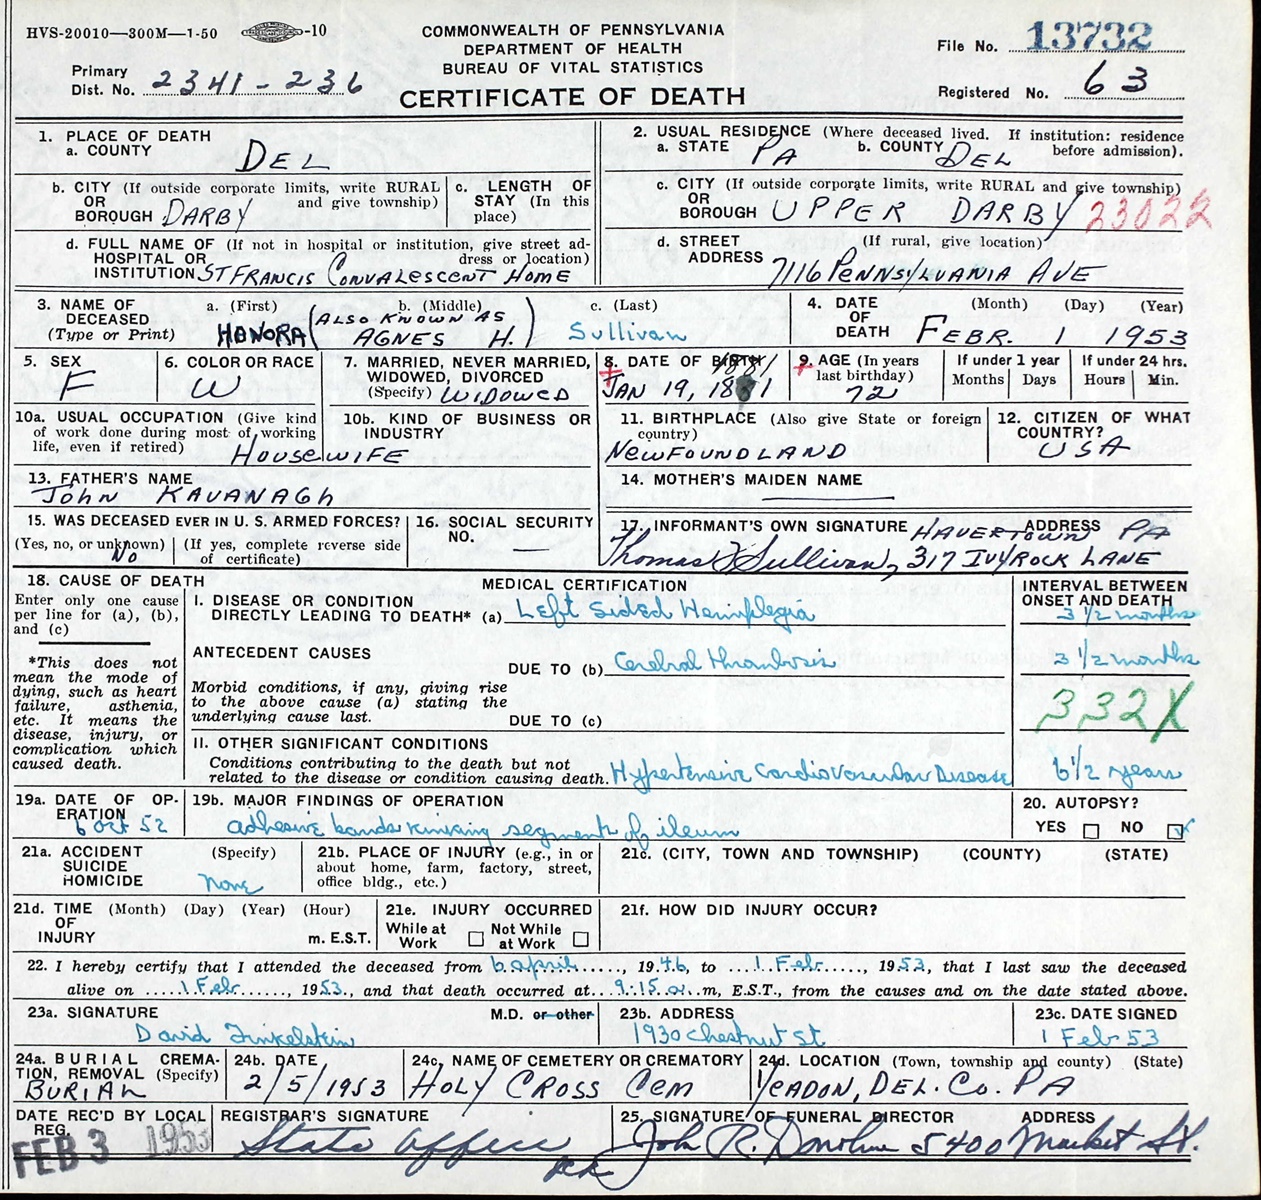 HVS-20010—300M—1-50 -10
COMMONWEALTH OF PENNSYLVANIA
DEPARTMENT OF HEALTH
BUREAU OF VITAL STATISTICS
CERTIFICATE OF DEATH
File No. 13732
Primary
Dist. No. 2341-236
Registered No. 63
1. PLACE OF DEATH
a. COUNTY DEL
2. USUAL RESIDENCE (Where deceased lived. If institution: residence
a. STATE PA b. COUNTY DEL before admission).
b. CITY (If outside corporate limits, write RURAL
OR and give township)
BOROUGH DARBY
c. LENGTH OF
STAY (In this
place)
c. CITY (If outside corporate limits, write RURAL and give township)
OR
BOROUGH UPPER DARBY 23022
d. FULL NAME OF (If not in hospital or institution, give street ad-
HOSPITAL OR dress or location)
INSTITUTION ST FRANCIS CONVALESCENT HOME
d. STREET (If rural, give location)
ADDRESS 7116 PENNSYLVANIA AVE
3. NAME OF a. (First) b. (Middle) c. (Last)
DECEASED
(Type or Print) HONORA (ALSO KNOWN AS
AGNES H.) Sullivan
4. DATE (Month) (Day) (Year)
OF
DEATH FEBR. 1 1953
5. SEX
F
6. COLOR OR RACE
W
7. MARRIED, NEVER MARRIED,
WIDOWED, DIVORCED
(Specify) WIDOWED
8. DATE OF BIRTH 1881
JAN 19, 1881
9. AGE (In years
last birthday)
72
If under 1 year
Months Days
If under 24 hrs.
Hours Min.
10a. USUAL OCCUPATION (Give kind
of work done during most of working
life, even if retired) HOUSEWIFE
10b. KIND OF BUSINESS OR
INDUSTRY
11. BIRTHPLACE (Also give State or foreign
country)
NEWFOUNDLAND
12. CITIZEN OF WHAT
COUNTRY?
USA
13. FATHER'S NAME
JOHN KAVANAGH
14. MOTHER'S MAIDEN NAME
15. WAS DECEASED EVER IN U. S. ARMED FORCES?
(Yes, no, or unknown) (If yes, complete reverse side
No of certificate)
16. SOCIAL SECURITY
NO. —
17. INFORMANT'S OWN SIGNATURE ADDRESS
HAVERTOWN PA
Thomas F Sullivan, 317 IVYROCK LANE
18. CAUSE OF DEATH
Enter only one cause
per line for (a), (b),
and (c)
*This does not
mean the mode of
dying, such as heart
failure, asthenia,
etc. It means the
disease, injury, or
complication which
caused death.
MEDICAL CERTIFICATION
INTERVAL BETWEEN
ONSET AND DEATH
I. DISEASE OR CONDITION
DIRECTLY LEADING TO DEATH* (a) Left Sided Hemiplegia 3 1/2 months
ANTECEDENT CAUSES
DUE TO (b) Cerebral thrombosis 3 1/2 months
Morbid conditions, if any, giving rise
to the above cause (a) stating the
underlying cause last. DUE TO (c)
332X
II. OTHER SIGNIFICANT CONDITIONS
Conditions contributing to the death but not
related to the disease or condition causing death. Hypertensive Cardiovascular Disease 6 1/2 years
19a. DATE OF OP-
ERATION
6 Oct 52
19b. MAJOR FINDINGS OF OPERATION
adhesive bands kinking segment of ileum
20. AUTOPSY?
YES NO
21a. ACCIDENT (Specify)
SUICIDE
HOMICIDE none
21b. PLACE OF INJURY (e.g., in or
about home, farm, factory, street,
office bldg., etc.)
21c. (CITY, TOWN AND TOWNSHIP) (COUNTY) (STATE)
21d. TIME (Month) (Day) (Year) (Hour)
OF
INJURY m. E.S.T.
21e. INJURY OCCURRED
While at Not While
Work at Work
21f. HOW DID INJURY OCCUR?
22. I hereby certify that I attended the deceased from 6 april, 1946, to 1 Febr, 1953, that I last saw the deceased
alive on 1 Febr, 1953, and that death occurred at 9:15 a. m, E.S.T., from the causes and on the date stated above.
23a. SIGNATURE M.D. or other
David Finkelstein
23b. ADDRESS
1930 Chestnut St
23c. DATE SIGNED
1 Feb 53
24a. BURIAL CREMA-
TION, REMOVAL (Specify)
BURIAL
24b. DATE
2/5/1953
24c. NAME OF CEMETERY OR CREMATORY
HOLY CROSS CEM
24d. LOCATION (Town, township and county) (State)
YEADON, DEL. CO. PA
DATE REC'D BY LOCAL
REG.
FEB 3 1953
REGISTRAR'S SIGNATURE
State Office
25. SIGNATURE OF FUNERAL DIRECTOR ADDRESS
John R. Donohue 5400 Market St.